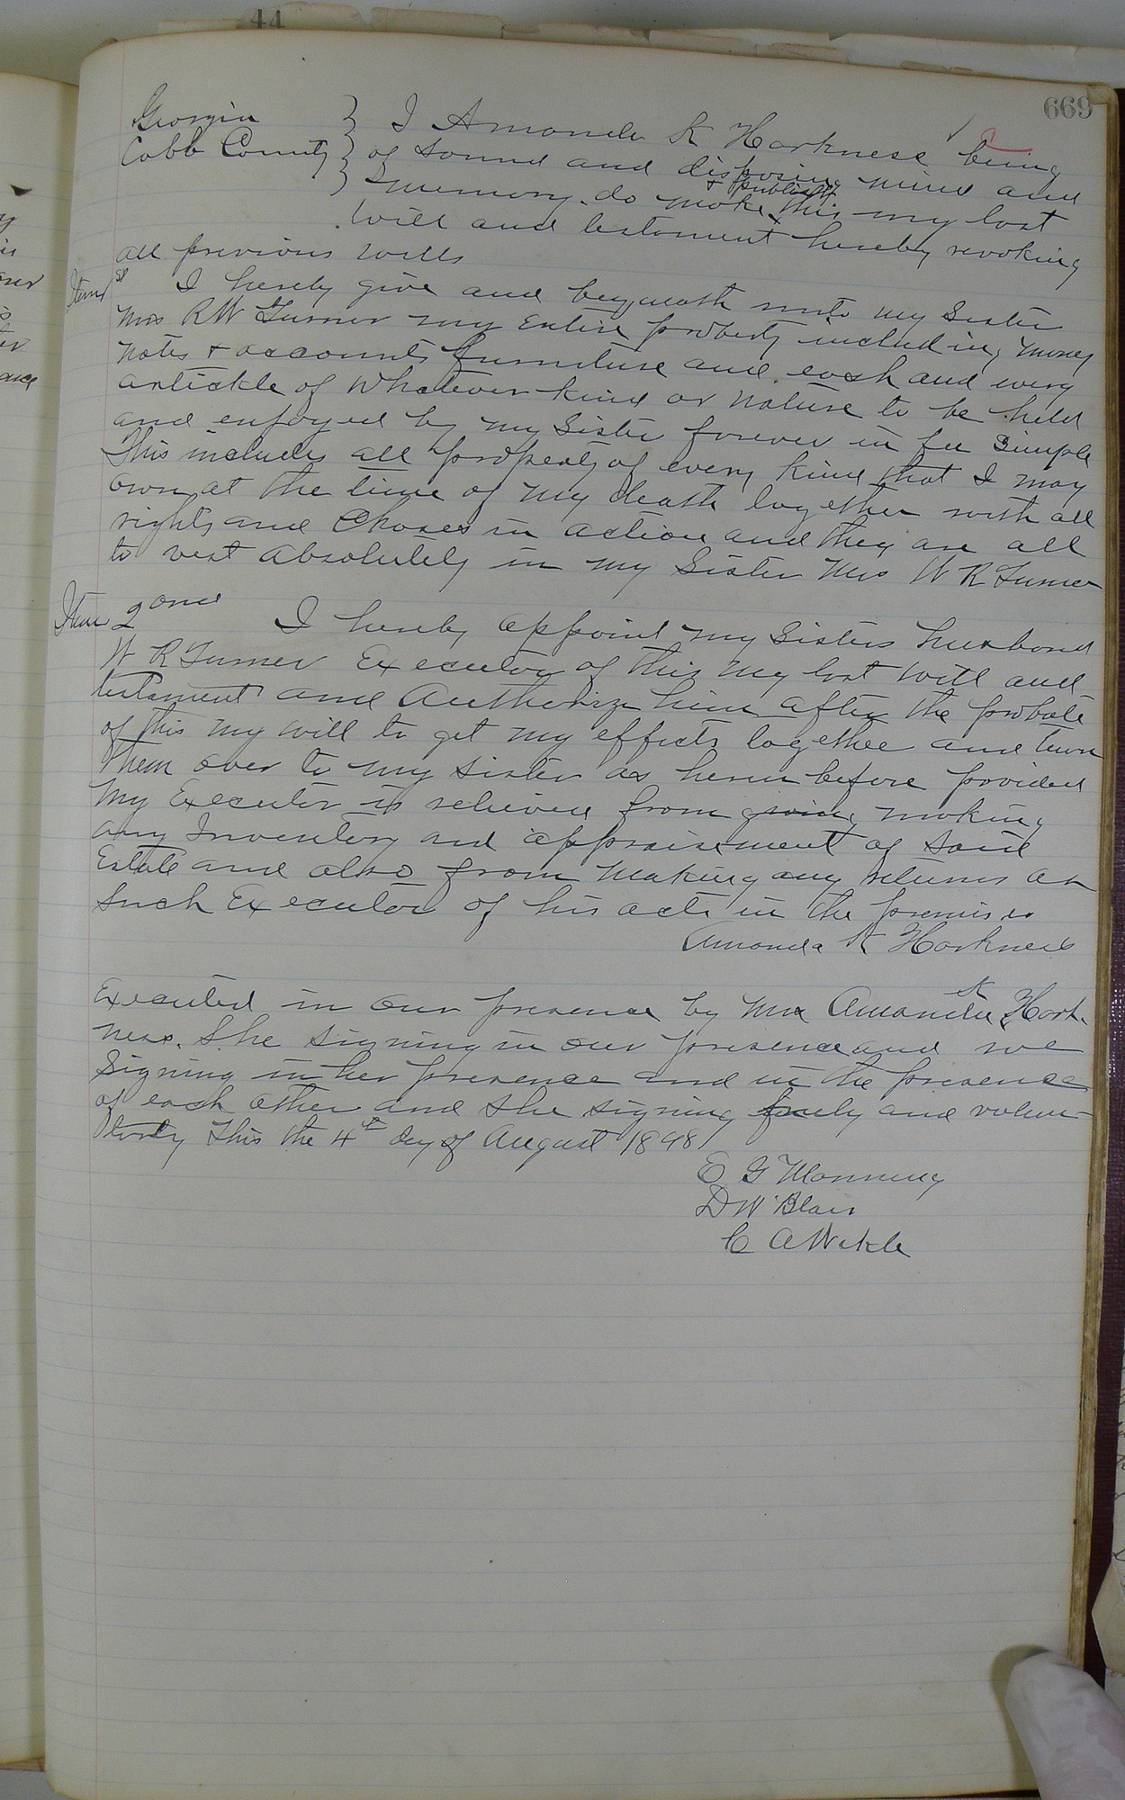 44
669
Georgia
Cobb County
I Amanda K Harkness being
of sound and disposing mind and
memory do make & publish this my last
Will and testament hereby revoking
all previous wills
Item 1st I hereby give and bequeath unto my Sister
Mrs R W Turner my Entire property including money
notes & accounts furniture and cash and every
artickle of whatever kind or nature to be held
and enjoyed by my Sister forever in fee simple
This includes all property of every kind that I may
own at the time of my death together with all
rights and choses in action and they are all
to vest absolutely in my Sister Mrs W R Turner
Item 2ond I hereby appoint my Sisters husband
W R Turner Executor of this my last will and
testament and Authorize him after the probate
of this my will to get my effects together and turn
them over to my sister as herein before provided
My Executor is relieved from giving making
any Inventory and appraisement of Said
Estate and also from making any returns as
Such Executor of his acts in the premises
Amanda K Harkness
Executed in our presence by Mrs Amanda K Hark-
ness. She signing in our presence and we
Signing in her presence and in the presence
of each other and she signing freely and volun-
tarily This the 4th day of August 1898
E G Manning
D W Blair
C A Wikle